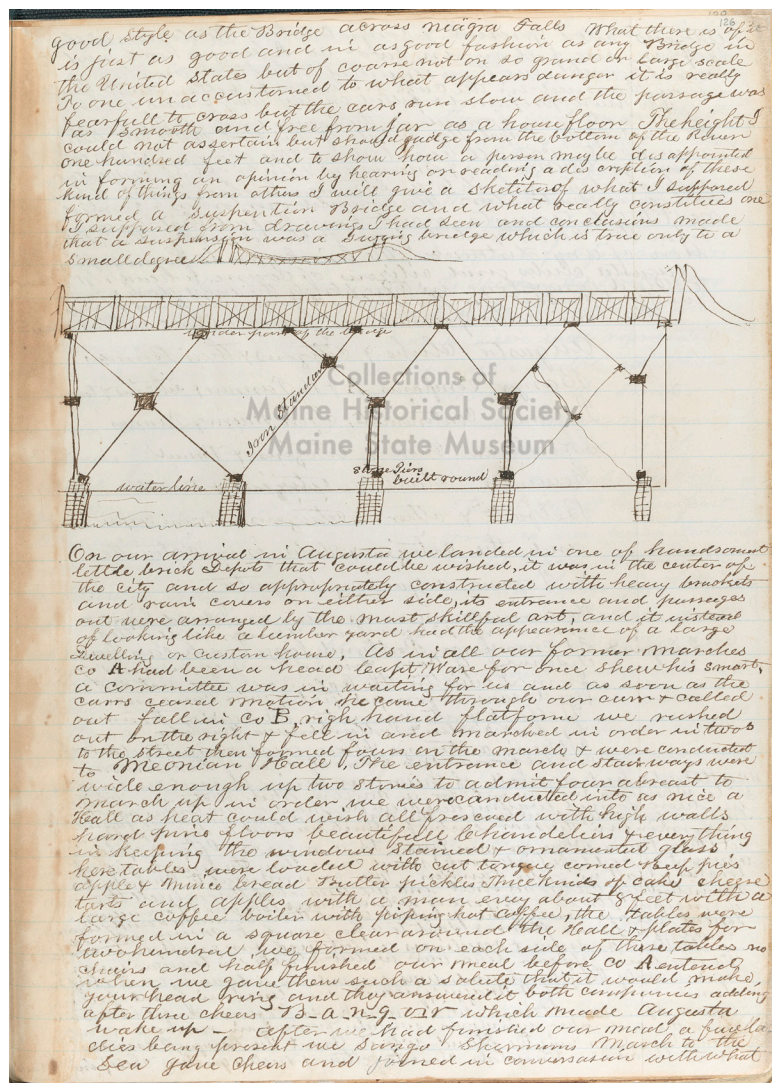 126
good style as the Bridge across niagra Falls What there is of it
is just as good and in as good fashion as any Bridge in
the United States but of coarse not on so grand or large scale
To one unaccustomed to what appears danger it is really
fearfull to cross but the cars run slow and the passage was
as smooth and free from jar as a house floor The height I
could not ascertain but should judge from the bottom of the River
one hundred feet and to show how a person maybe disappointed
in forming an opinion by hearing or reading a discription of these
kind of things from others I will give a sketch of what I supposed
formed a Suspention Bridge and what really constitutes one
I supposed from drawings I had seen and conclusions made
that a suspension was a swinging bridge which is true only to a
small degree
under part of the bridge
Iron Standard
Collections of
Maine Historical Society
Maine State Museum
stone Piers
built round
water line
On our arrival in Augusta we landed in one of handsomest
little brick Depots that could be wished, it was in the center of
the city and so appropriately constructed with heavy brackets
and rain covers on either side, its entrance and passages
out were arranged by the most skillful art, and it instead
of looking like a lumber yard had the appearance of a large
Dwelling or Custom house. As in all our former marches
Co A had been a head Capt Ware for once shew his smart,
a committee was in waiting for us and as soon as the
carrs ceased motion he came through our carr & called
out Fall in Co B, righ hand platform we rushed
out on the right & fell in and marched in order in twos
to the street then formed fours on the march & were conducted
to Meonian Hall, The entrance and stairways were
wide enough up two stories to admit four abreast to
march up in order, we were conducted into as nice a
Hall as heat could wish all frescoed with high walls
hard pine floors beautifull Chandeliers & everything
in keeping the windows stained & ornamented glass
here tables were loaded with cut tongue corned Beef pies
apple & mince bread Butter pickles three kinds of cake cheese
tarts and apples with a man evry about 8 feet with a
large coffee boiler with piping hot coffee, the tables were
formed in a square clear around the Hall & plates for
two hundred we formed on each side of these tables no
chairs and half finished our meal before Co A entered
when we gave them such a salute that it would make
your head ring and they answered it both companies adding
after three cheers B-a-n-g-o-r which made Augusta
wake up - After we had finished our meal, a few la-
dies being present we sango Shermans March to the
Sea gave cheers and joined in conversation with what